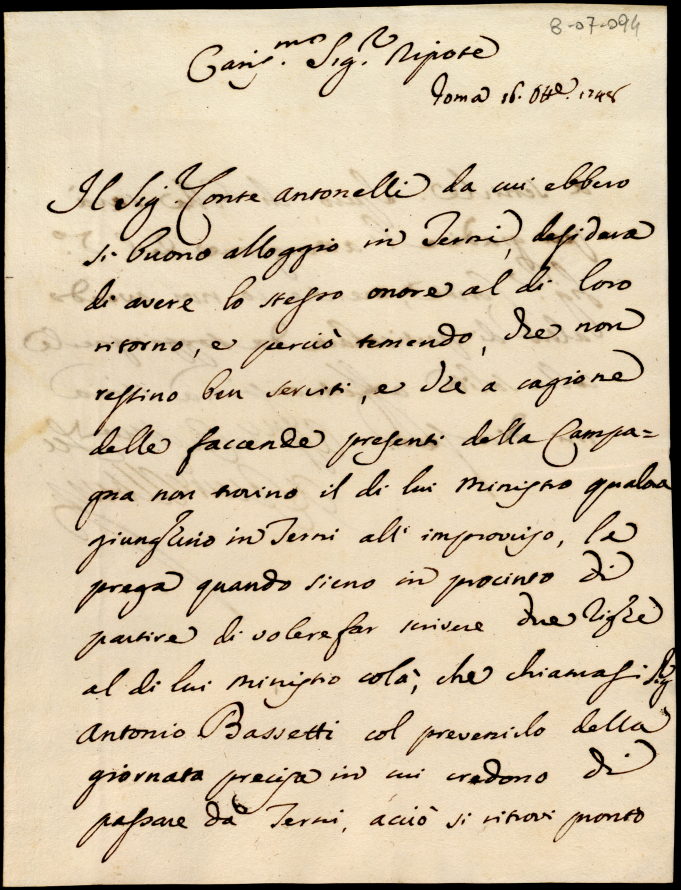 8-07-094
Cariss.mo Sig.r Nipote
Roma 16. Ott.e 1748
Il Sig.r Conte Antonelli da cui ebbero
si buono alloggio in Terni, desidera
di avere lo stesso onore al di loro
ritorno, e perciò temendo, che non
restino ben serviti, e che a cagione
delle faccende presenti della Campa=
gna non trovino il di lui Ministro qualora
giunghino in Terni all' improviso, la
prega quando sieno in procinto di
partire di volere far scrivere due righe
al di lui Ministro colà, che chiamasi Sig
Antonio Bassetti col prevenirlo della
giornata precisa in cui credono di
passare da Terni, acciò si ritrovi pronto